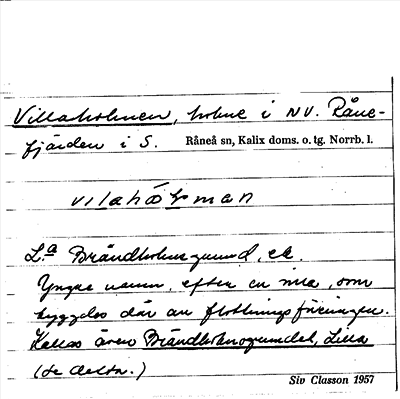 Villaholmen, holme i NV. Råne-
fjärden i S. Råneå sn, Kalix doms. o. tg. Norrb. l.
L:a Brändholmsgrund, ek.
Yngre namn, efter en villa, som
byggdes där av flottningsföreningen.
Kallas även Brändholmsgrundet, Lilla
(se detta.)
Siv Classon 1957